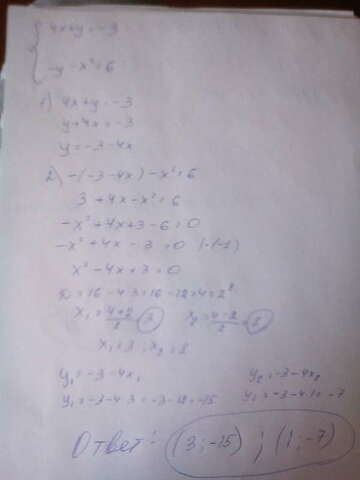 { 4x+y=-3
-y-x²=6
1) 4x+y=-3
y+4x=-3
y=-3-4x
2) -(-3-4x)-x²=6
3+4x-x²=6
-x²+4x+3-6=0
-x²+4x-3=0 |·(-1)
x²-4x+3=0
D=16-4·3=16-12=4=2²
x₁=(4+2)/2=3 x₂=(4-2)/2=1
x₁=3; x₂=1
y₁=-3-4x₁ y₂=-3-4x₂
y₁=-3-4·3=-3-12=-15 y₂=-3-4·1=-7
Ответ: (3;-15); (1;-7)